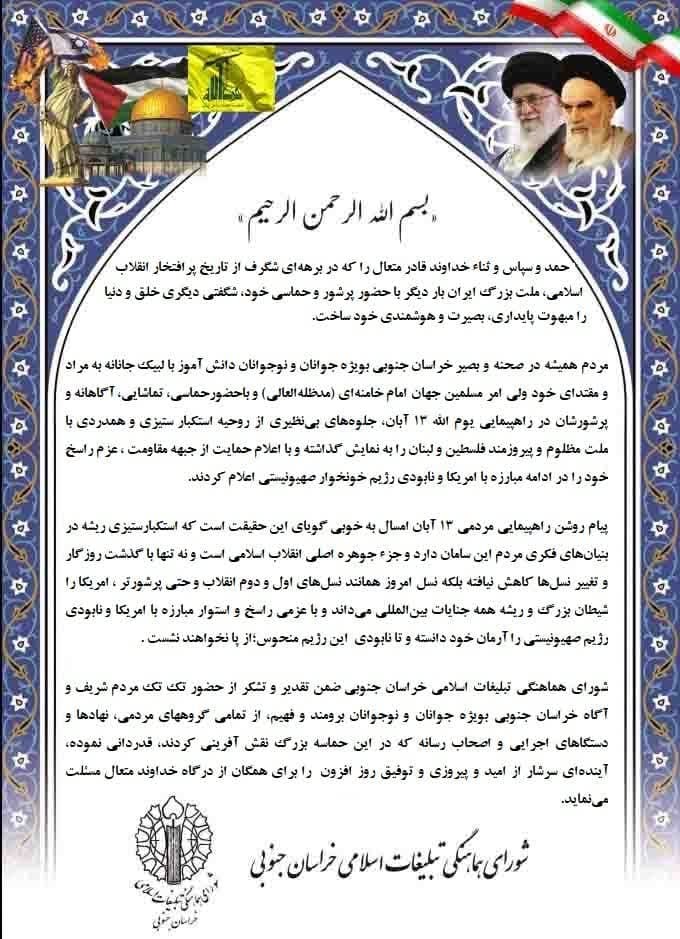 «بسم الله الرحمن الرحیم»
حمد و سپاس و ثناء خداوند قادر متعال را که در برهه‌ای شگرف از تاریخ پرافتخار انقلاب
اسلامی، ملت بزرگ ایران بار دیگر با حضور پرشور و حماسی خود، شگفتی دیگری خلق و دنیا
را مبهوت پایداری، بصیرت و هوشمندی خود ساخت.
مردم همیشه در صحنه و بصیر خراسان جنوبی بویژه جوانان و نوجوانان دانش آموز با لبیک جانانه به مراد
و مقتدای خود ولی امر مسلمین جهان امام خامنه‌ای (مدظله‌العالی) و باحضورحماسی، تماشایی، آگاهانه و
پرشورشان در راهپیمایی یوم الله ۱۳ آبان، جلوه‌های بی‌نظیری از روحیه استکبار ستیزی و همدردی با
ملت مظلوم و پیروزمند فلسطین و لبنان را به نمایش گذاشته و با اعلام حمایت از جبهه مقاومت ، عزم راسخ
خود را در ادامه مبارزه با امریکا و نابودی رژیم خونخوار صهیونیستی اعلام کردند.
پیام روشن راهپیمایی مردمی ۱۳ آبان امسال به خوبی گویای این حقیقت است که استکبارستیزی ریشه در
بنیان‌های فکری مردم این سامان دارد و جزء جوهره اصلی انقلاب اسلامی است و نه تنها با گذشت روزگار
و تغییر نسل‌ها کاهش نیافته بلکه نسل امروز همانند نسل‌های اول و دوم انقلاب و حتی پرشورتر ، امریکا را
شیطان بزرگ و ریشه همه جنایات بین‌المللی می‌داند و با عزمی راسخ و استوار مبارزه با امریکا و نابودی
رژیم صهیونیستی را آرمان خود دانسته و تا نابودی این رژیم منحوس؛از پا نخواهند نشست .
شورای هماهنگی تبلیغات اسلامی خراسان جنوبی ضمن تقدیر و تشکر از حضور تک تک مردم شریف و
آگاه خراسان جنوبی بویژه جوانان و نوجوانان برومند و فهیم، از تمامی گروههای مردمی، نهادها و
دستگاهای اجرایی و اصحاب رسانه که در این حماسه بزرگ نقش آفرینی کردند، قدردانی نموده،
آینده‌ای سرشار از امید و پیروزی و توفیق روز افزون را برای همگان از درگاه خداوند متعال مسئلت
می‌نماید.
شورای هماهنگی تبلیغات اسلامی خراسان جنوبی
شورای هماهنگی تبلیغات اسلامی
خراسان جنوبی